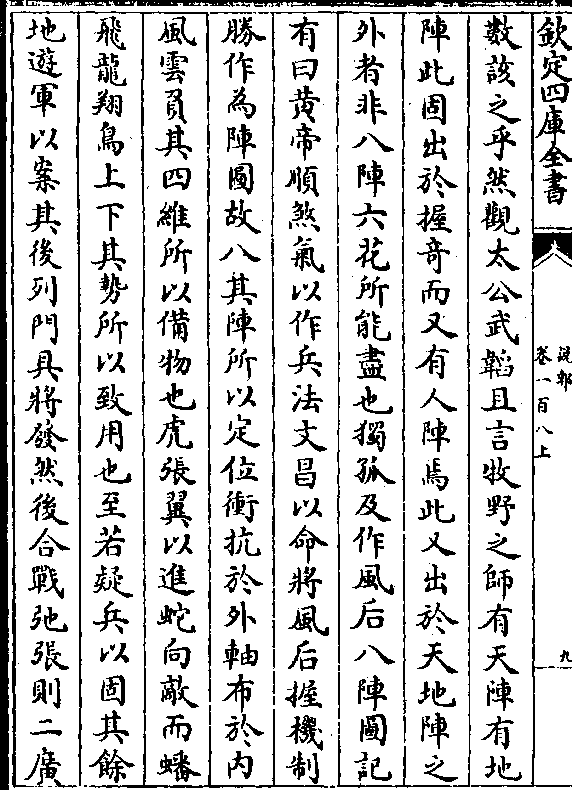 欽定四庫全書
說郛
卷一百八上
九
數該之乎然觀太公武韜且言牧野之師有天陣有地
陣此固出於握奇而又有人陣焉此又出於天地陣之
外者非八陣六花所能盡也獨孤及作風后八陣圖記
有曰黃帝順煞氣以作兵法文昌以命將風后握機制
勝作為陣圖故八其陣所以定位衝抗於外軸布於內
風雲負其四維所以備物也虎張翼以進蛇向敵而蟠
飛龍翔鳥上下其勢所以致用也至若疑兵以固其餘
地遊軍以案其後列門具將發然後合戰弛張則二廣